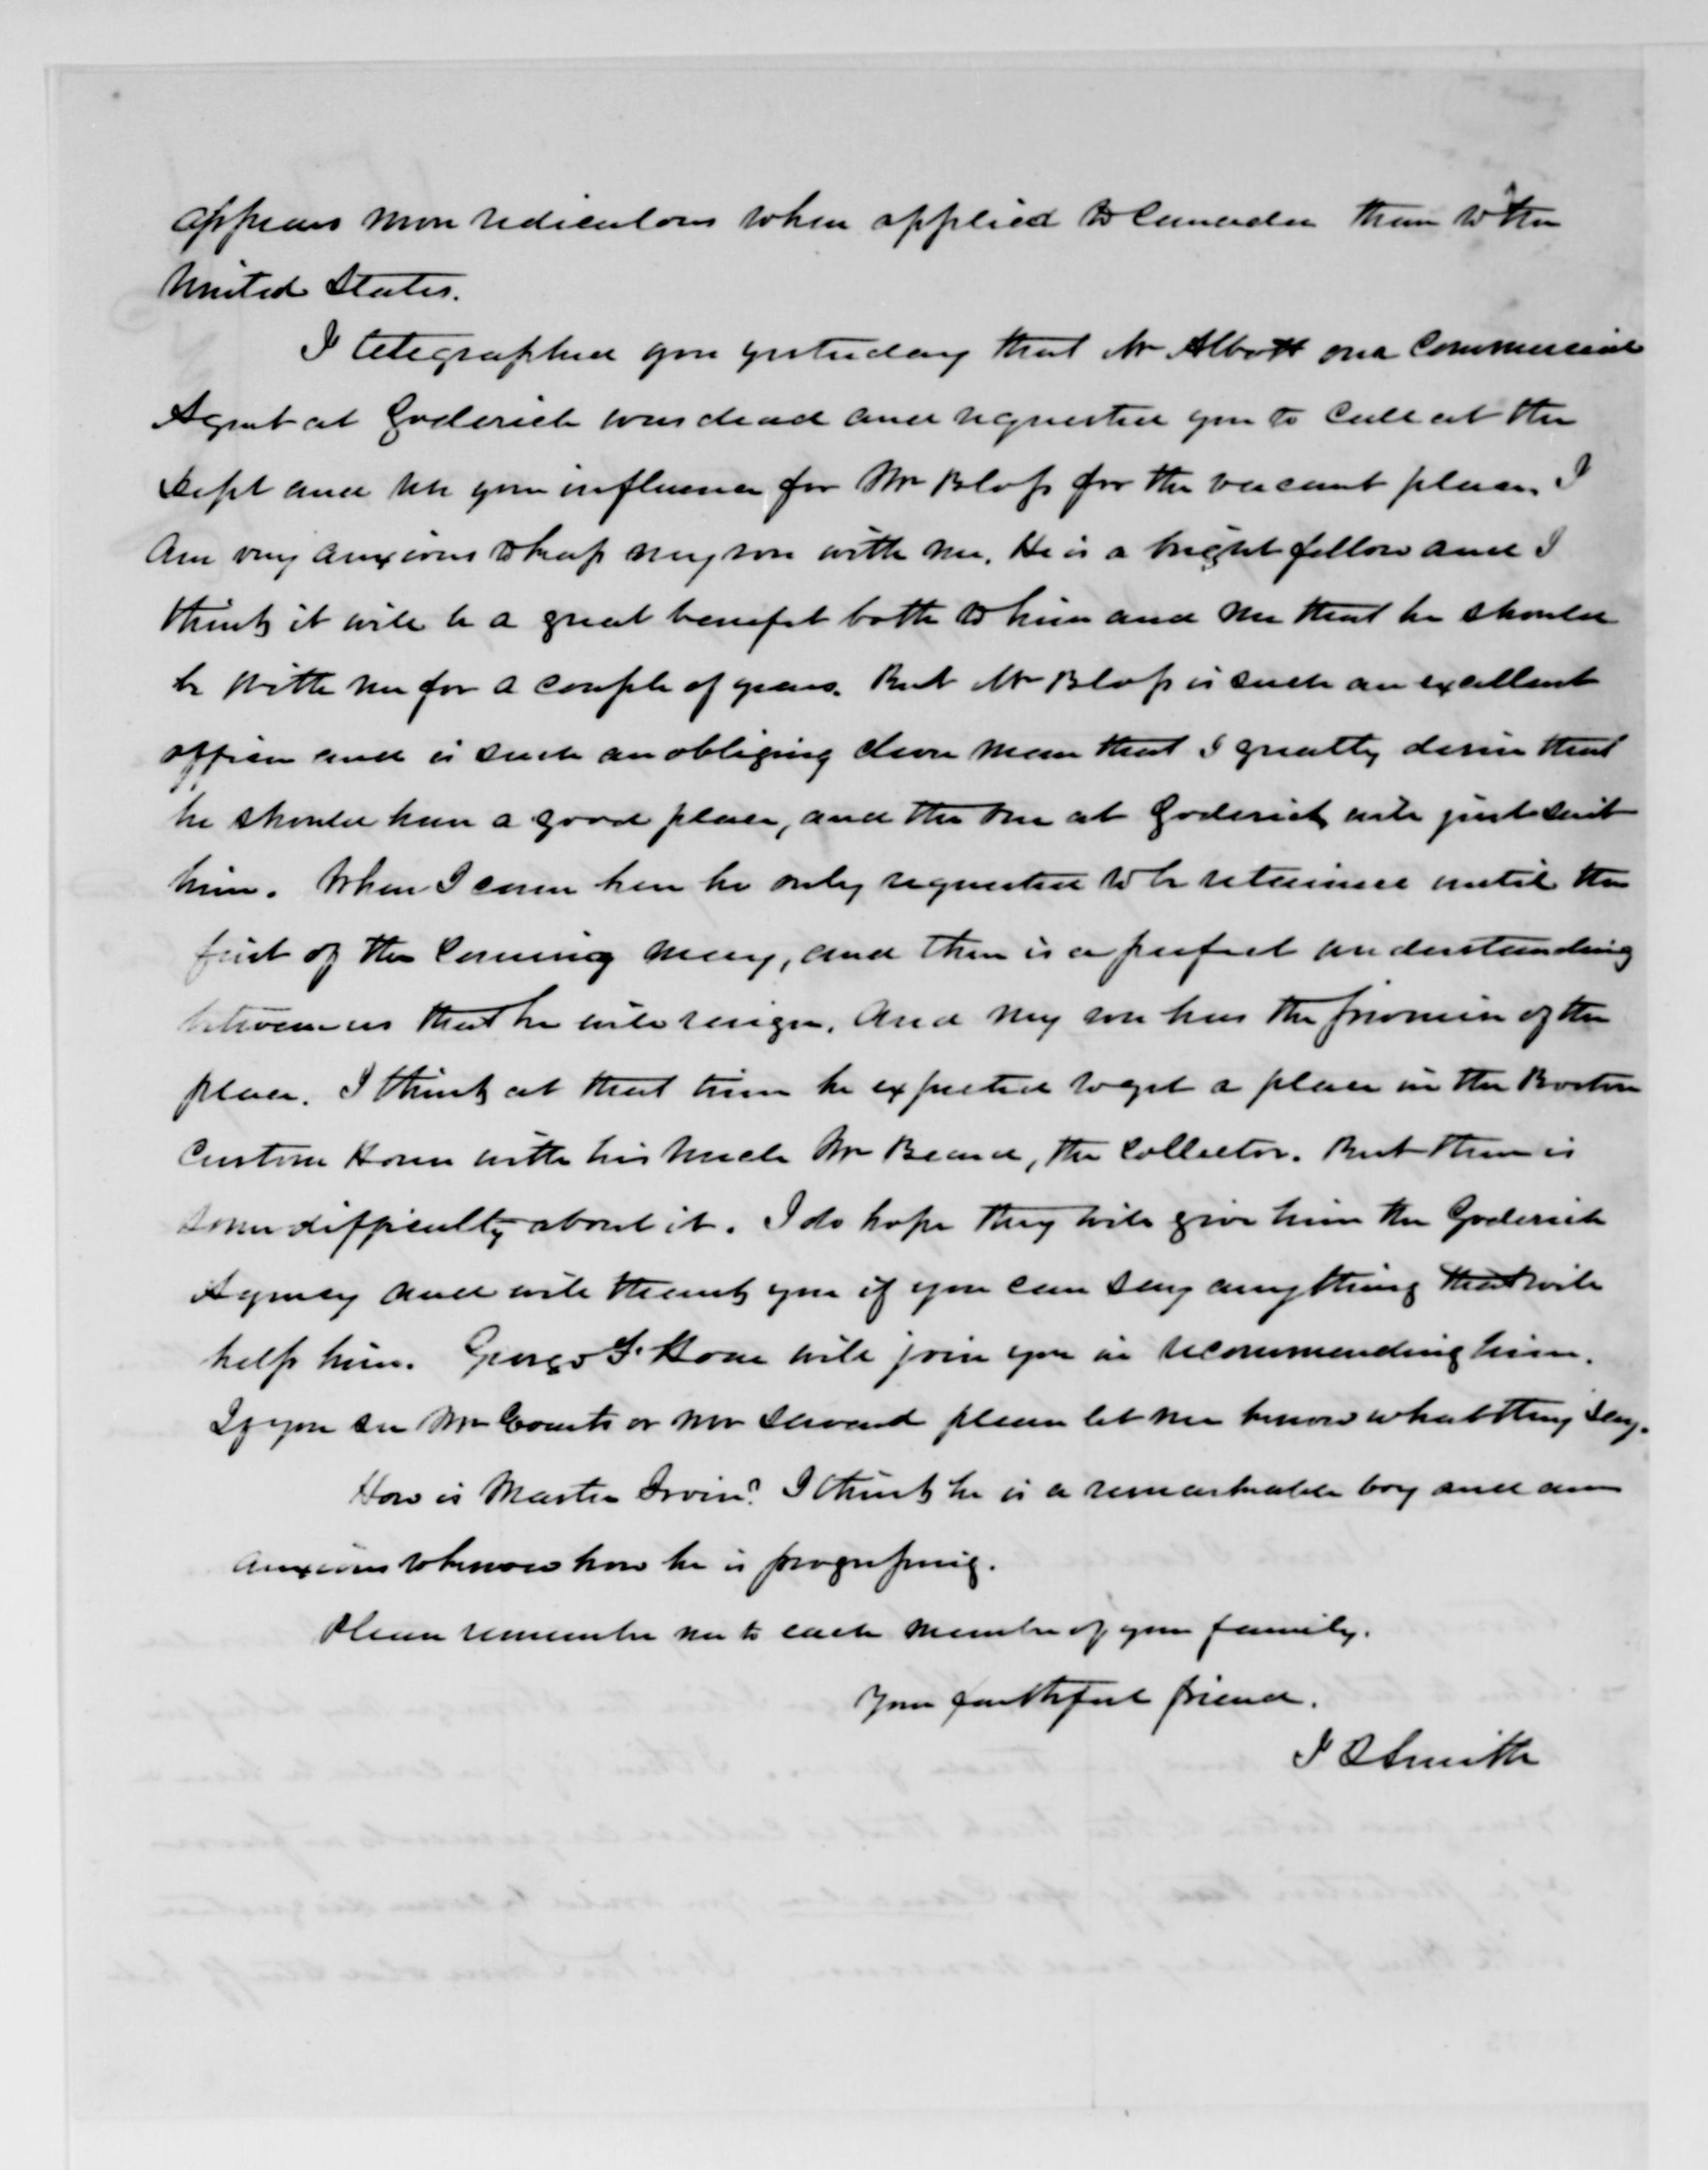 appears more rediculous when applied to Canada than to the
United States.
I telegraphed you yesterday that Mr Abbott our Commercial
Agent at Goderich was dead and requested you to call at the
Dept and use your influence for Mr Bloss for the vacant place. I
am very anxious to keep my son with me. He is a bright fellow and I
think it will be a great benefit both to him and me that he should
be with me for a couple of years. But Mr Bloss is such an excellent
officer and is such an obliging clever man that I greatly desire that
he should have a good place, and the one at Goderich will just suit
him. When I came here he only requested to be retained until the
first of the coming May, and there is a perfect understanding
between us that he will resign. And my son has the promise of the
place. I think at that time he expected to get a place in the Boston
Custom House with his Uncle Mr Beard, the Collector. But there is
some difficulty about it. I do hope they will give him the Goderich
Agency and will thank you if you can say anything that will
help him. George F. Hoar will join you in recommending him.
If you see Mr Evarts or Mr Seward please let me know what they say.
How is Master Irvin? I think he is a remarkable boy and am
anxious to know how he is progressing.
Please remember me to each member of your family.
Your faithful friend.
J Q Smith